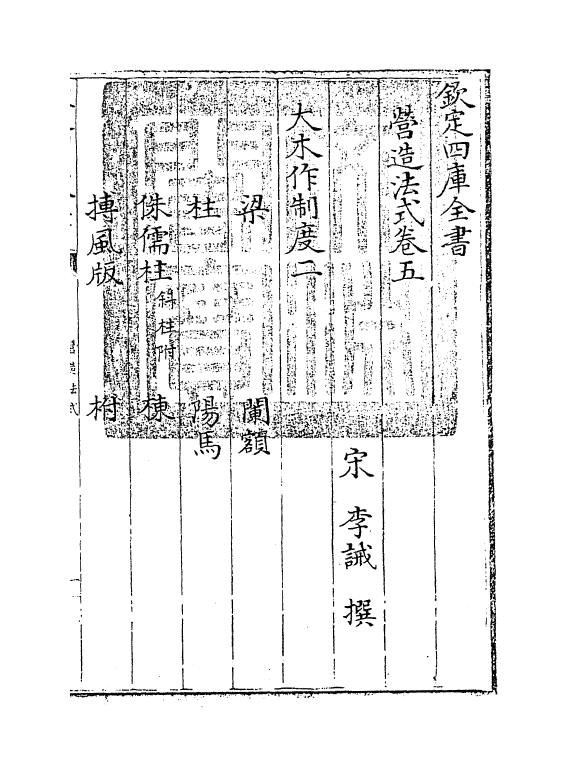 欽定四庫全書
營造法式卷五
宋 李誡 撰
大木作制度二
梁 闌額
柱 陽馬
侏儒柱 斜柱附 棟
搏風版 柎
營造法式